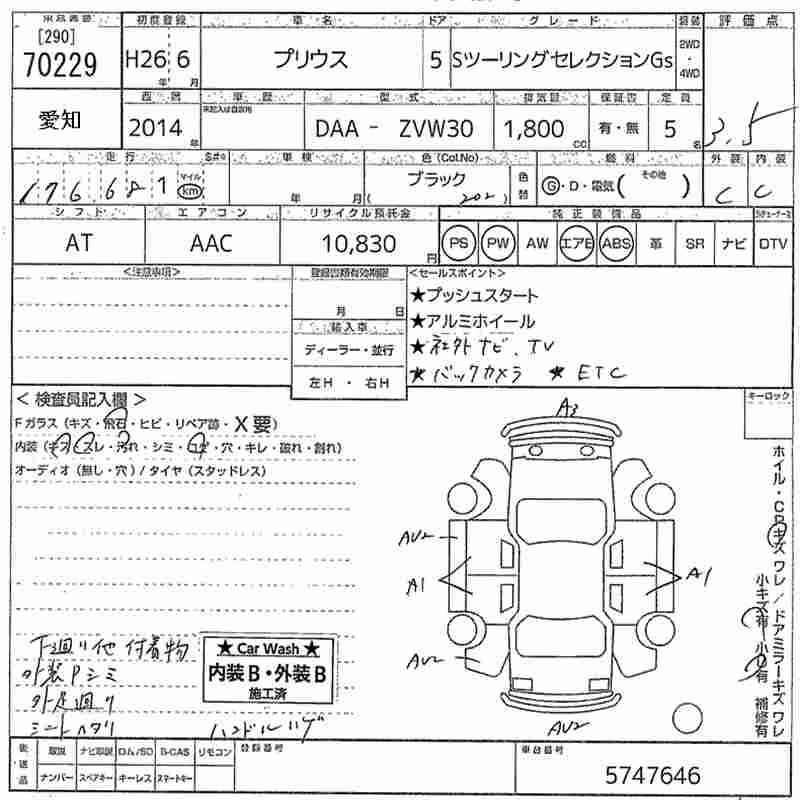 [290]
70229
初度登録 車名 ドア グレード 評価点
H26 6 プリウス 5 SツーリングセレクションGs 2WD・4WD
年 月
愛知
西暦 車歴 型式 排気量 保証書 定員
2014年 DAA - ZVW30 1,800cc 有・無 5名 3.5
走行 車検 色(Col.No) 燃料 外装 内装
176681 マイル km 年 月 ブラック (202) 色替 G・D・電気(その他) C C
シフト エアコン リサイクル預託金 純正装備品
AT AAC 10,830円 PS PW AW エアB ABS 革 SR ナビ DTV
<注意事項> 登録書類有効期限 <セールスポイント>
月 日
★プッシュスタート
★アルミホイール
輸入車
ディーラー・並行
左H・右H
★社外ナビ、TV
★バックカメラ ★ETC
<検査員記入欄> キーロック
Fガラス(キズ・飛石・ヒビ・リペア跡・X要)
内装(キズ・スレ・汚れ・シミ・コゲ・穴・キレ・破れ・割れ)
オーディオ(無し・穴)/タイヤ(スタッドレス)
A3
AU2
A1 A1
AU2
AU2
ホイル・CPキズ ワレ/ドアミラーキズ ワレ
小キズ有 小U有 補修有
下廻り他 付着物
外装Pシミ
外足廻り
シートヘタリ ハンドルハゲ
★Car Wash★
内装B・外装B
施工済
後送品 取説 ナビ取説 ロム/SD B-CAS リモコン 登録番号 車台番号
ナンバー スペアキー キーレス スマートキー 5747646